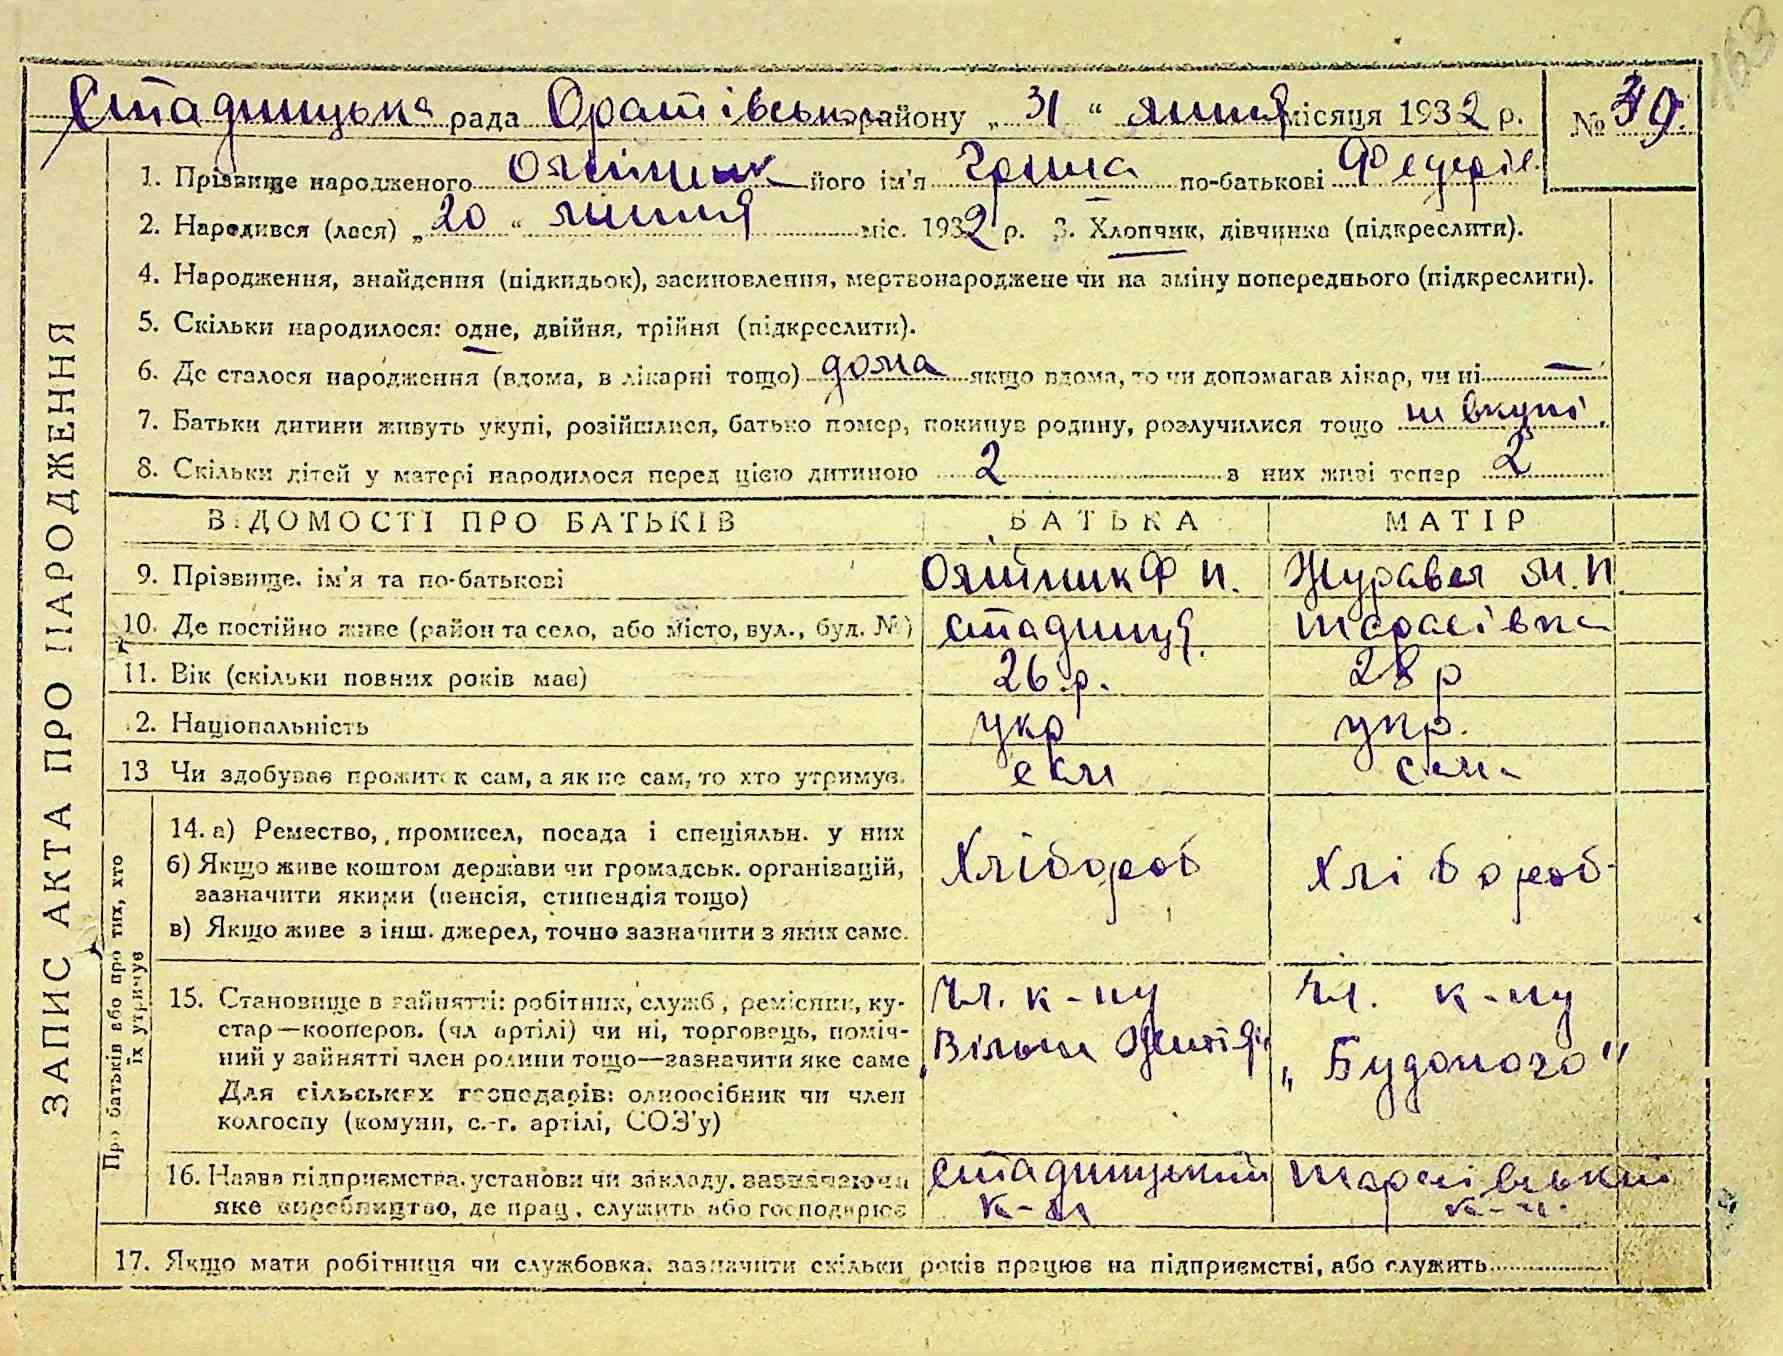 168
Стадницька рада Оратівського району „ 31 “ липня місяця 1932 р. № 39.
1. Прізвище народженого Олійник його ім'я Гриша по-батькові Федорів.
2. Народився (лася) „ 20 “ липня міс. 1932 р. 3. Хлопчик, дівчинка (підкреслити).
4. Народження, знайдення (підкидьок), засиновлення, мертвонароджене чи на зміну попереднього (підкреслити).
5. Скільки народилося: одне, двійня, трійня (підкреслити).
6. Де сталося народження (вдома, в лікарні тощо) дома якщо вдома, то чи допомагав лікар, чи ні —
7. Батьки дитини живуть укупі, розійшлися, батько помер, покинув родину, розлучилися тощо ни вкупі.
8. Скільки дітей у матері народилося перед цією дитиною 2 з них живі тепер 2
ВІДОМОСТІ ПРО БАТЬКІВ БАТЬКА МАТІР
9. Прізвище, ім'я та по-батькові Олійник Ф И. Журавел М. И
10. Де постійно живе (район та село, або місто, вул., буд. №) Стадниця. Тарасівка
11. Вік (скільки повних років має) 26 р. 28 р
12. Національність укр укр.
13 Чи здобуває прожиток сам, а як не сам, то хто утримує. сам
14. а) Ремество, промисел, посада і спеціяльн. у них
б) Якщо живе коштом держави чи громадськ. організацій,
зазначити якими (пенсія, стипендія тощо)
в) Якщо живе з інш. джерел, точно зазначити з яких саме.
Хлібороб Хлібороб
15. Становище в зайнятті: робітник, служб., ремісник, ку-
стар—кооперов. (чл артілі) чи ні, торговець, поміч-
ний у зайнятті член родини тощо—зазначити яке саме
Для сільських господарів: одноосібник чи член
колгоспу (комуни, с.-г. артілі, СОЗ'у)
Чл. к-пу Чл. к-пу
„Вільне Життя „ Будоного"
16. Назва підприємства, установи чи закладу, зазначаючи Стадницький Тарасівський
яке виробництво, де прац., служить або господарює
17. Якщо мати робітниця чи службовка, зазначити скільки років працює на підприємстві, або служить
ЗАПИС АКТА ПРО НАРОДЖЕННЯ
Про батьків або про тих, хто
їх утримує